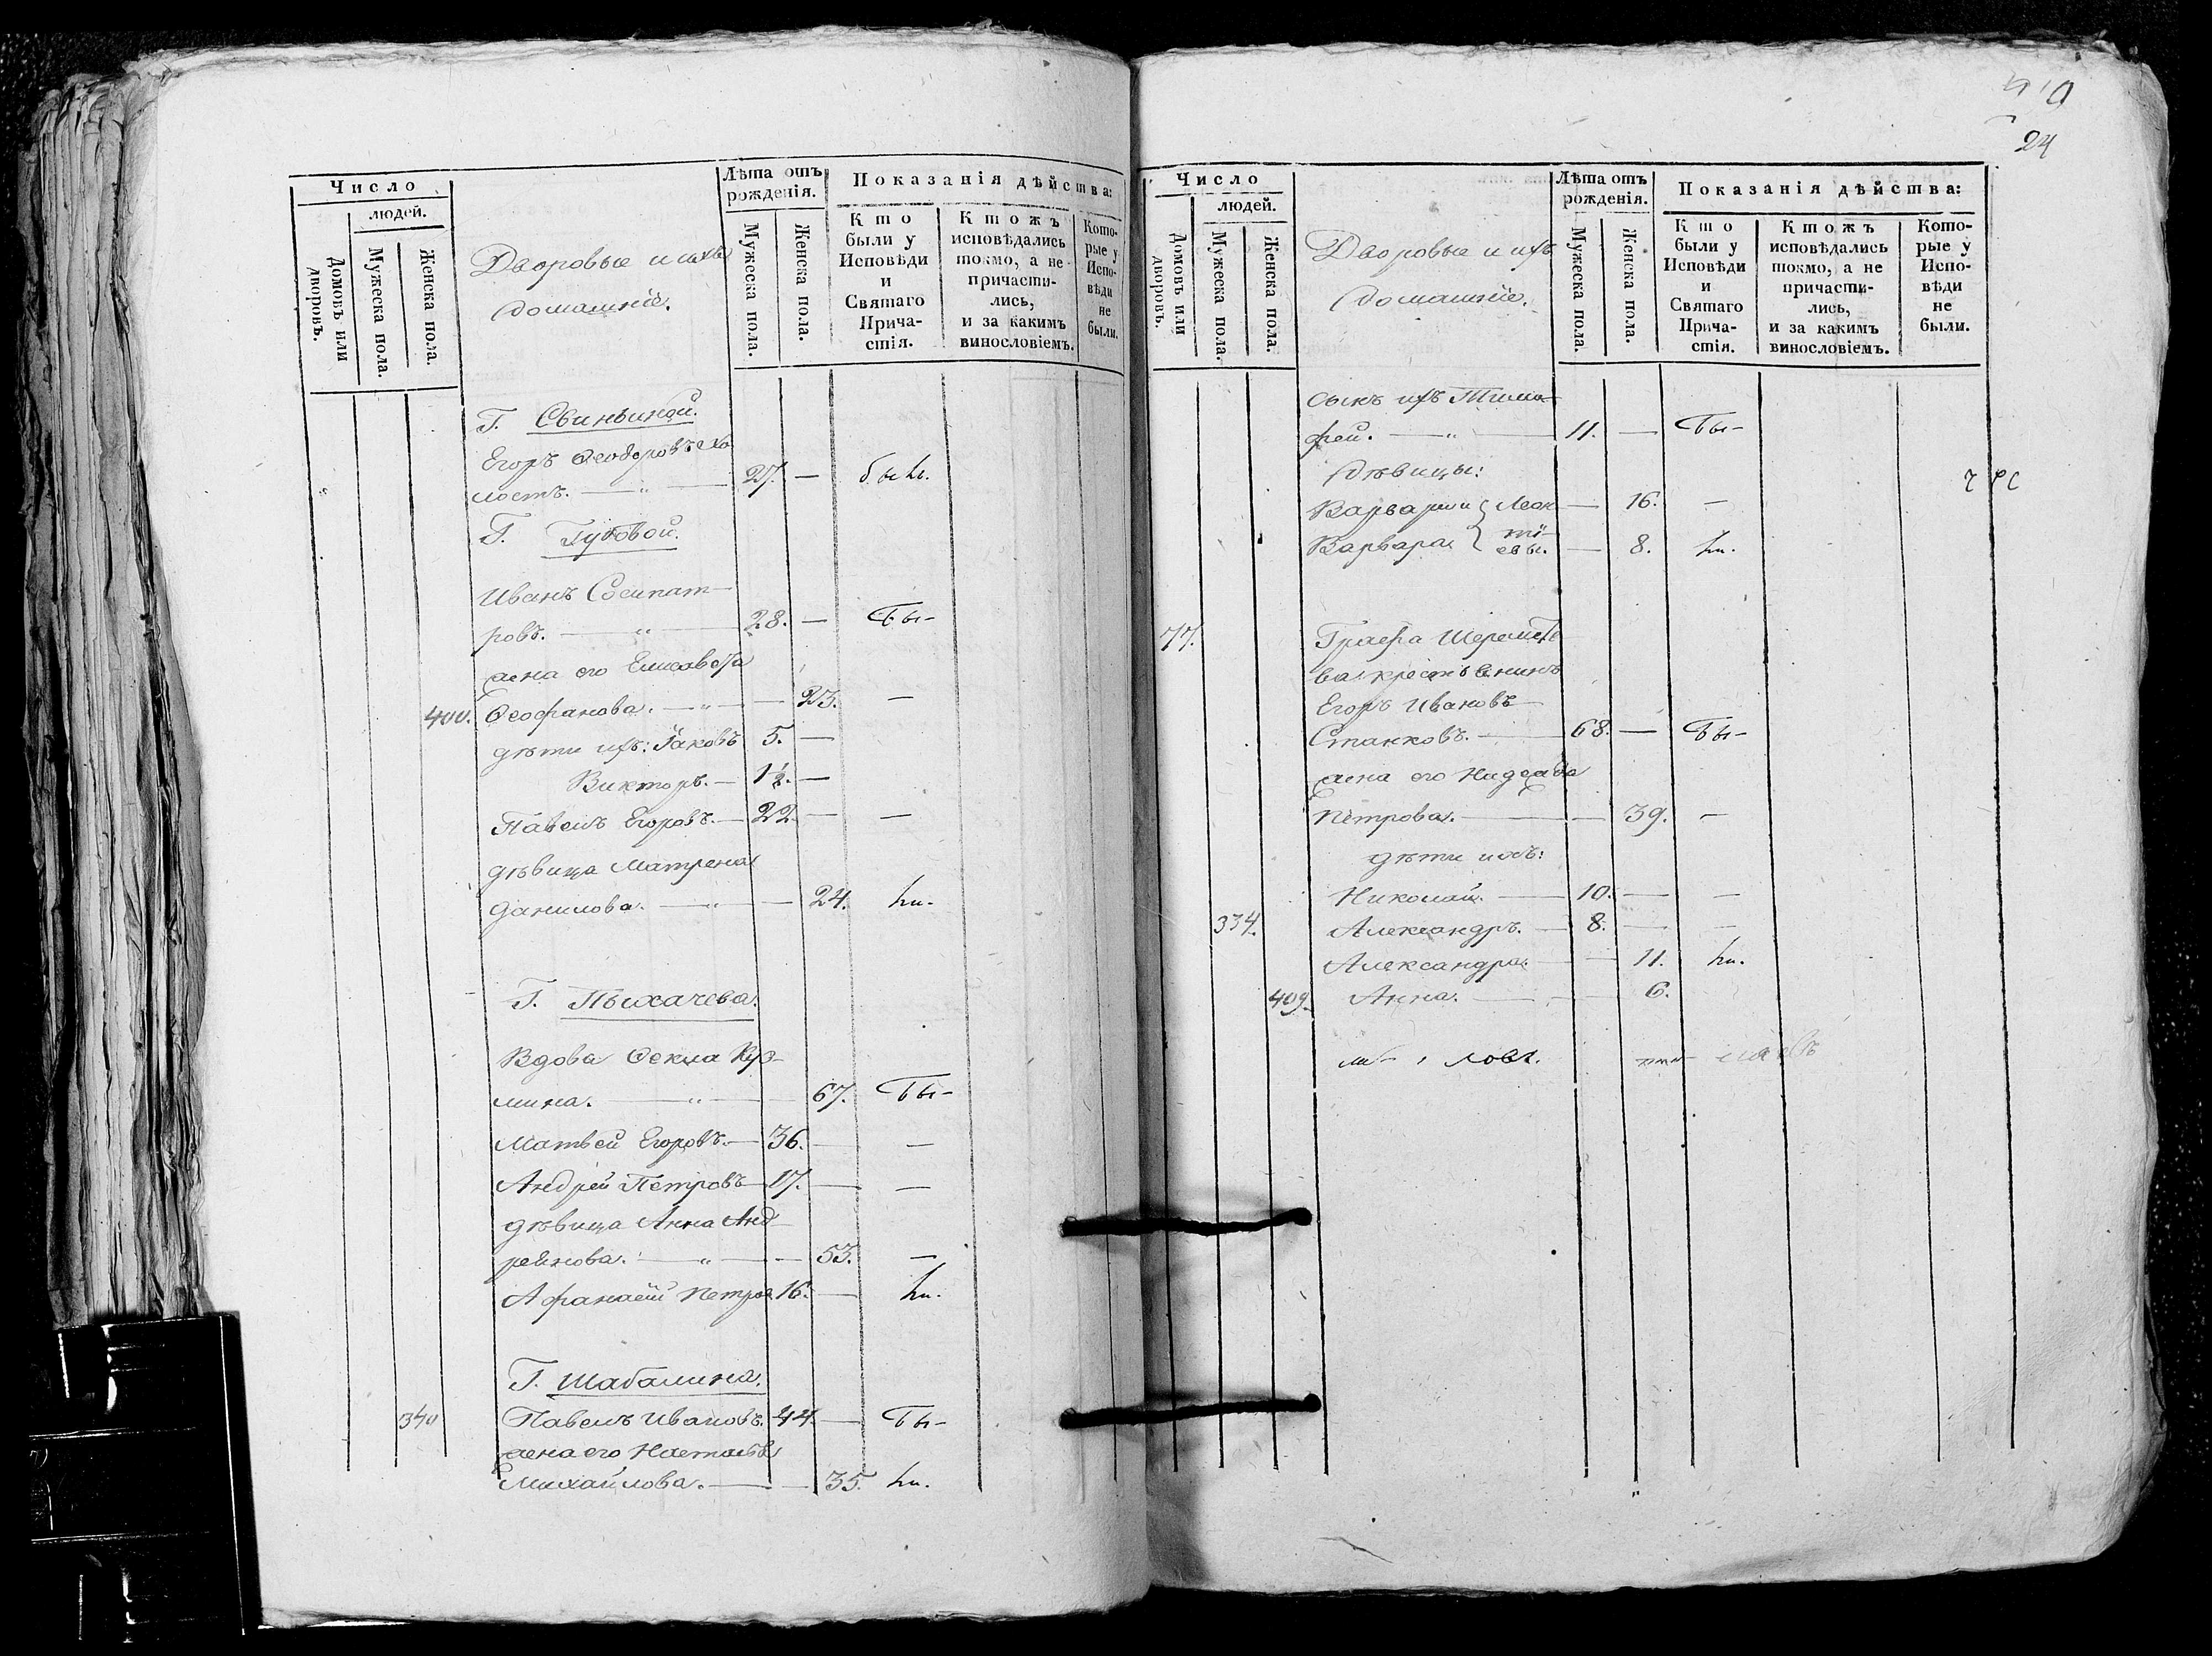 Число
людей.
Домовъ или дворовъ.
Мужеска пола.
Женска пола.
Дворовые и ихъ
домашніе.
Лѣта отъ
рожденія.
Мужеска пола.
Женска пола.
Показанія дѣйства:
Кто
были у
Исповѣди
и
Святаго
Прича-
стія.
Ктожъ
исповѣдались
токмо, а не
причасти-
лись,
и за какимъ
винословіемъ.
Кото-
рые у
Испо-
вѣди
не
были.
Г. Свиньиной.
Егоръ Ѳеодоровъ хо
лостъ. — „ — 27. —
Г.
Иванъ Сосипат-
ровъ. — „ — 28. — бы-
жена его Елисавета
400. Ѳеофанова. — „ — — 23. —
дѣти ихъ: Іаковъ 5. —
Викторъ. — 1½. —
Павелъ Егоровъ. — 22 — —
дѣвица Матрена
Данилова. — „ — — 24. ли.
Г. Пыхачева.
Вдова Ѳекла Куз-
мина. — „ — 67. бы-
Матвей Егоровъ. — 36. — —
Андрей Петровъ — 17. — —
дѣвица Анна Анд
реянова. — „ — — 53. —
Афанасій Петров 16. — ли.
Г. Шабалина.
340 Павелъ Ивановъ. 44. — бы-
жена его Наталья
Михайлова. — — 35. ли.
24
Число
людей.
Домовъ или дворовъ.
Мужеска пола.
Женска пола.
Дворовые и ихъ
домашніе.
Лѣта отъ
рожденія.
Мужеска пола.
Женска пола.
Показанія дѣйства:
Кто
были у
Исповѣди
и
Святаго
Прича-
стія.
Ктожъ
исповѣдались
токмо, а не
причасти-
лись,
и за какимъ
винословіемъ.
Кото-
рые у
Испо-
вѣди
не
были.
сынъ ихъ Тимо-
фей. — „ — 11. — бы-
дѣвицы:
Варвара и } Леон — 16. —
Варвара } тіевы. — 8. ли.
77. Графа Шереметe
ва крестьянинъ
Егоръ Ивановъ
Станковъ. — 68. — бы-
жена его Надежда
Петрова. — — 39. —
дѣти ихъ:
Николай. — 10. — —
334. Александръ. — 8. — —
Александра. — — 11. ли.
409. Анна. — — 6.